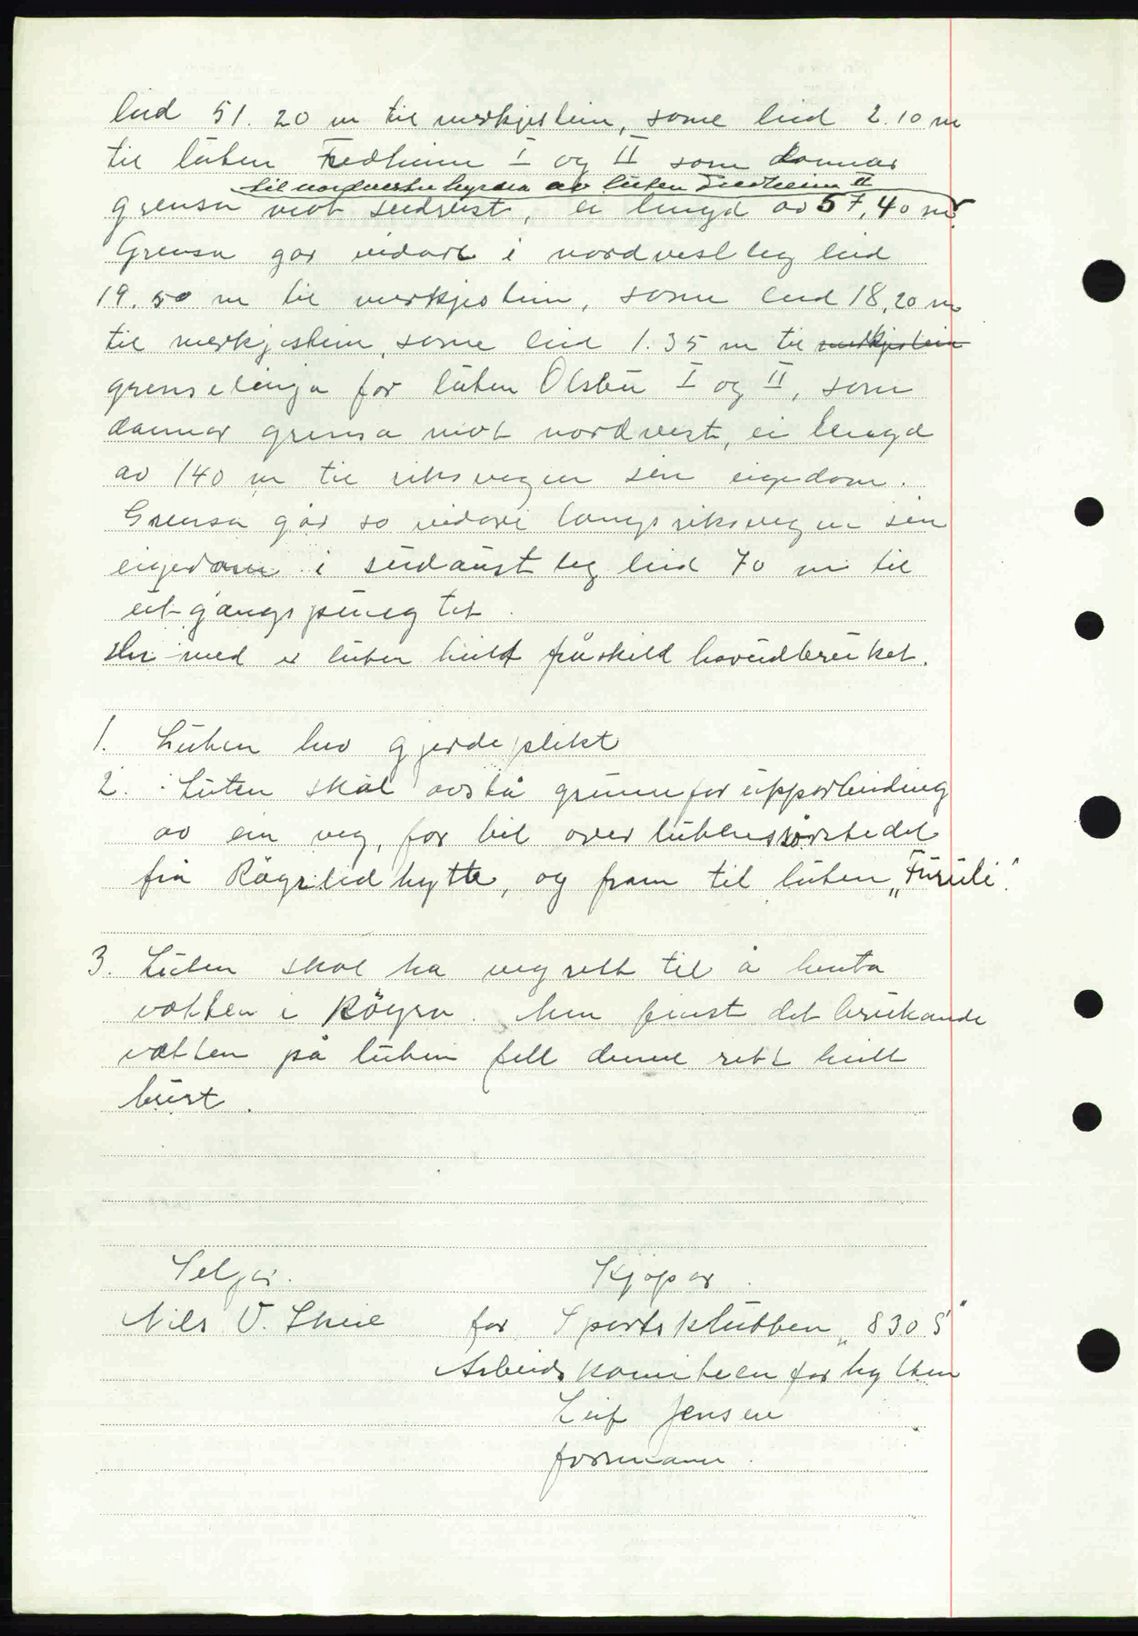 leid 51.20 m til merkjestein, same leid 2.10 m
til luten Fredheim I og II som dannar
til nordvestre hyrna av luten Fredheim II
grensa mot sudvest, ei lengd av 57,40 m.
Grensa går vidare i nordvestleg leid
19.50 m til merkjestein, same leid 18,20 m
til merkjestein, same leid 1.35 m til merkjestein
grenselinja for luten Olsbu I og II, som
dannar grensa mot nordvest, ei lengd
av 140 m til riksvegen sin eigedom.
Grensa går so vidare langs riksvegen sin
eigedom i sudaustleg leid 70 m til
utgangspunktet.
Her med er luten heilt fråskild hovudbruket.
1. Luten hev gjerdeplikt
2. Luten skal avstå grunn for upparbeiding
av ein veg, for bil over lutens
frå Røgnelid hytta, og fram til luten „Furuli".
3. Luten skal ha vegrett til å henta
vatten i Røgna. Men finst det brukande
vatten på luten fell denne rett heilt
burt.
Seljar. Kjøpar.
Nils V. Skeie for Sportsklubben „830 S"
Arbeidskomiteen for hytten
Leif Jensen
formann.